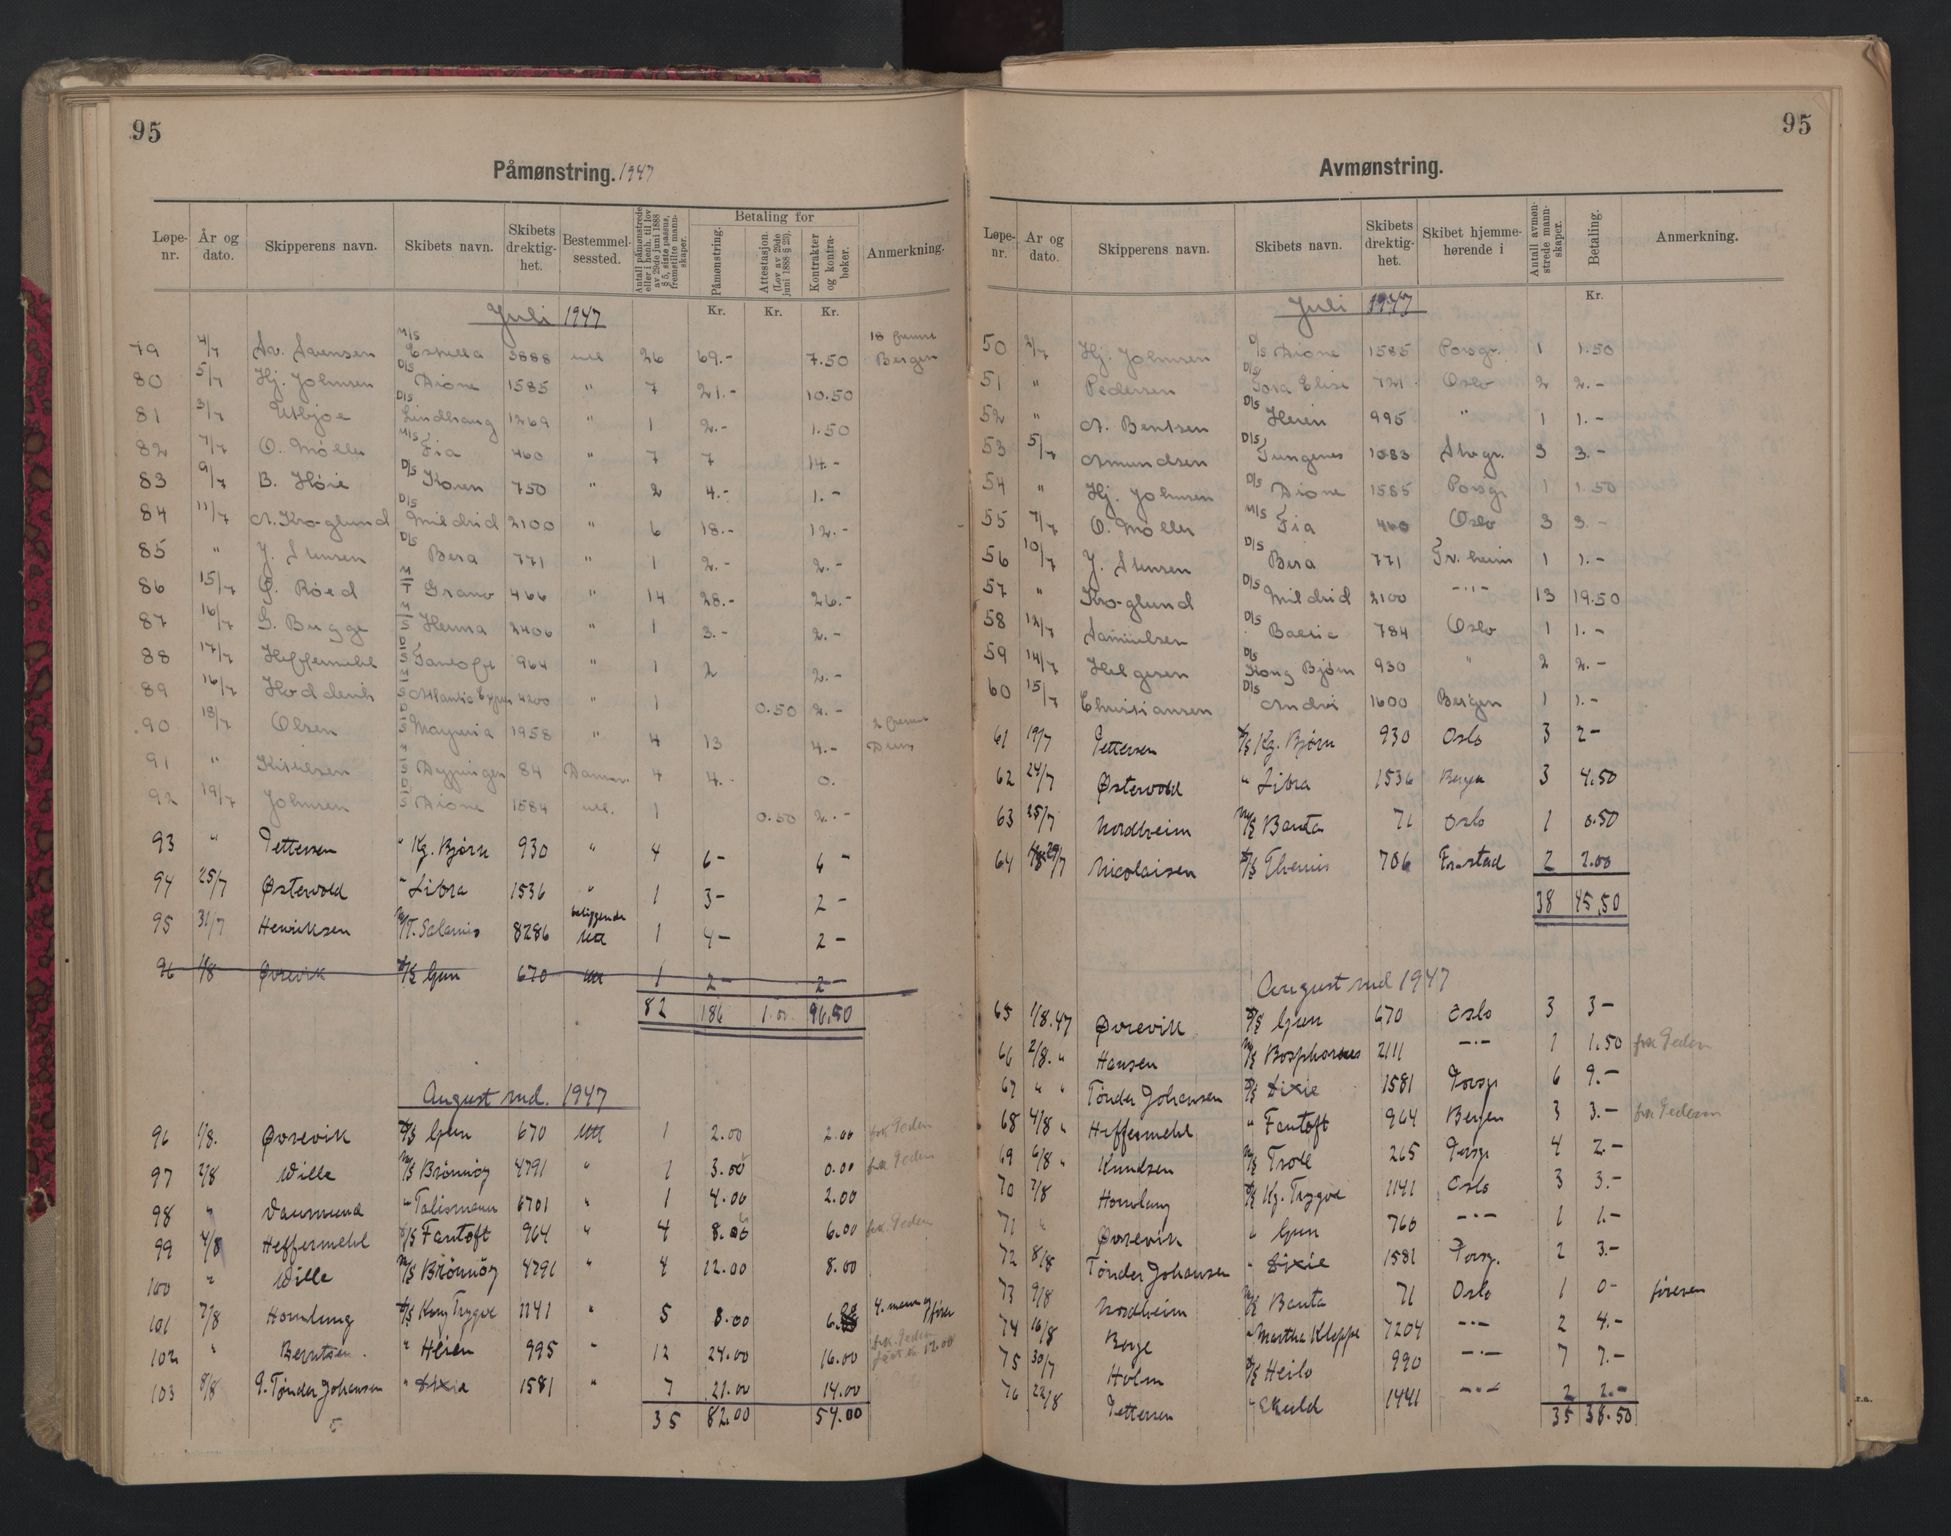 95
Påmønstring. 1947
Løpe-nr. År og dato. Skipperens navn. Skibets navn. Skibets drektig-het. Bestemmel-sessted. Antall påmønstrede eller i henh. til lov av 29de juni 1888 § 5, siste passus, fremstilte mann-skaper. Betaling for Påmønstring. Attestasjon. (Lov av 29de juni 1888 § 25). Kontrakter og kontra-bøker. Anmerkning.
Kr. Kr. Kr.
Juli 1947
79 4/7 Av. Svensen M/S Estrella 3888 utl 26 69.- 7.50 18 fremst Bergen
80 5/7 Hj. Johnsen D/S Dione 1585 " 7 21.- 10.50
81 3/7 Utbjoe D/S Lindhaug 1269 " 1 2.- 1.50
82 7/7 O. Møller M/S Fia 460 " 7 7 14.-
83 9/7 B. Høie D/S Koren 750 " 2 4.- 1.-
84 11/7 A. Kroglund D/S Mildrid 2100 " 6 18.- 12.-
85 " J. Stensen D/S Bera 771 " 1 2.- 2.-
86 15/7 Røed M/T Grano 466 " 14 28.- 26.-
87 16/7 G. Bugge M/S Herma 2406 " 1 3.- 2.-
88 17/7 Heffermehl D/S Fantoft 964 " 1 2 2.-
89 16/7 Hoddevik M/S Atlantic 4200 " 1 0.50 2.-
90 18/7 Olsen D/S 1958 " 4 13 4.- 2 fremst
91 " Kittilsen M/S Dyppingen 84 Danm. 4 4.- 0.
92 19/7 Johnsen D/S Dione 1584 utl. 1 0.50 2.-
93 " Pettersen " Kg. Bjørn 930 " 4 6- 6-
94 25/7 Østervold " Libra 1536 " 1 3- 2-
95 31/7 Henriksen M/T. Salamis 8286 beliggende Utl 1 4- 2-
96 1/8 Øvrevik D/S Gun 670 Utl 1 2- 2-
82 186 1.00 96.50
August md. 1947
96 1/8. Øvrevik D/S Gun 670 Utl 1 2.00 2.00 fra Peders
97 2/8 Wille M/S Brønnøy 4791 " 1 3.00 0.00 fra Peders
98 " Vaumund " Talisman 6701 " 1 4.00 2.00
99 4/8 Heffermehl D/S Fantoft 964 " 4 8.00 6.00 fra Peders
100 " Wille M/S Brønnøy 4791 " 4 12.00 8.00
101 7/8 Homlung D/S Kong Trygve 1141 " 5 8.00 6.00 4. menn og fører
102 " Berntsen. " Heien 995 " 12 24.00 16.00 fra Peders
103 8/8 P. Tønder Johansen " Dixie 1581 " 7 21.00 14.00
35 82.00 54.00
95
Avmønstring.
Løpe-nr. År og dato. Skipperens navn. Skibets navn. Skibets drektig-het. Skibet hjemme-hørende i Antall avmøn-strede mann-skaper. Betaling. Anmerkning.
Kr.
Juli 1947
50 2/7 Hj. Johnsen D/S Dione 1585 Porsgr. 1 1.50
51 " Pedersen D/S Tora Elise 721 Oslo 2 2.-
52 " A. Bentsen D/S Heien 995 " 1 1.-
53 5/7 Amundsen D/S Tungenes 1083 Stvgr. 3 3.-
54 " Hj. Johnsen D/S Dione 1585 Porsgr 1 1.50
55 7/7 O. Møller M/S Fia 460 Oslo 3 3.-
56 10/7 J. Stensen D/S Bera 771 Tr.heim 1 1.-
57 " Kroglund D/S Mildrid 2100 -"- 13 19.50
58 12/7 Samuelsen D/S Baltic 784 Oslo 1 1.-
59 14/7 Helgesen D/S Kong Bjørn 930 " 2 2.-
60 15/7 Christiansen D/S Andri 1600 Bergen 1 1.-
61 19/7 Pettersen D/S Kg. Bjørn 930 Oslo 3 2-
62 24/7 Østervold " Libra 1536 Bergen 3 4.50
63 25/7 Nordheim M/S Banta 71 Oslo 1 0.50
64 29/7 Nicolaisen D/S Themis 706 Fr.stad 2 2.00
38 45.50
August md 1947
65 1/8.47 Øvrevik D/S Gun 670 Oslo 3 3-
66 2/8. " Hansen M/S Bosphorus 2111 -"- 1 1.50 fra Peders
67 " " Tønder Johansen D/S Dixie 1581 Porsgr 6 9.-
68 4/8 " Heffermehl " Fantoft 964 Bergen 3 3.- fra Pedersen
69 6/8 " Knudsen M/S Trolt 265 Porsgr 4 2.-
70 7/8 Homlung D/S Kg. Trygve 1141 Oslo 3 3.-
71 " Øvrevik " Gun 760 -"- 1 1.-
72 8/8 Tønder Johansen " Dixie 1581 Porsgr. 2 3.-
73 9/8 Nordheim M/S Banta 71 Oslo 1 0- føreren
74 16/8 Borge " Martha Kleppe 7204 -"- 2 4.-
75 30/7 Holm D/S Heilo 990 -"- 7 7.-
76 22/8 Pettersen " Skuld 1441 -"- 2 2.-
35 38.50